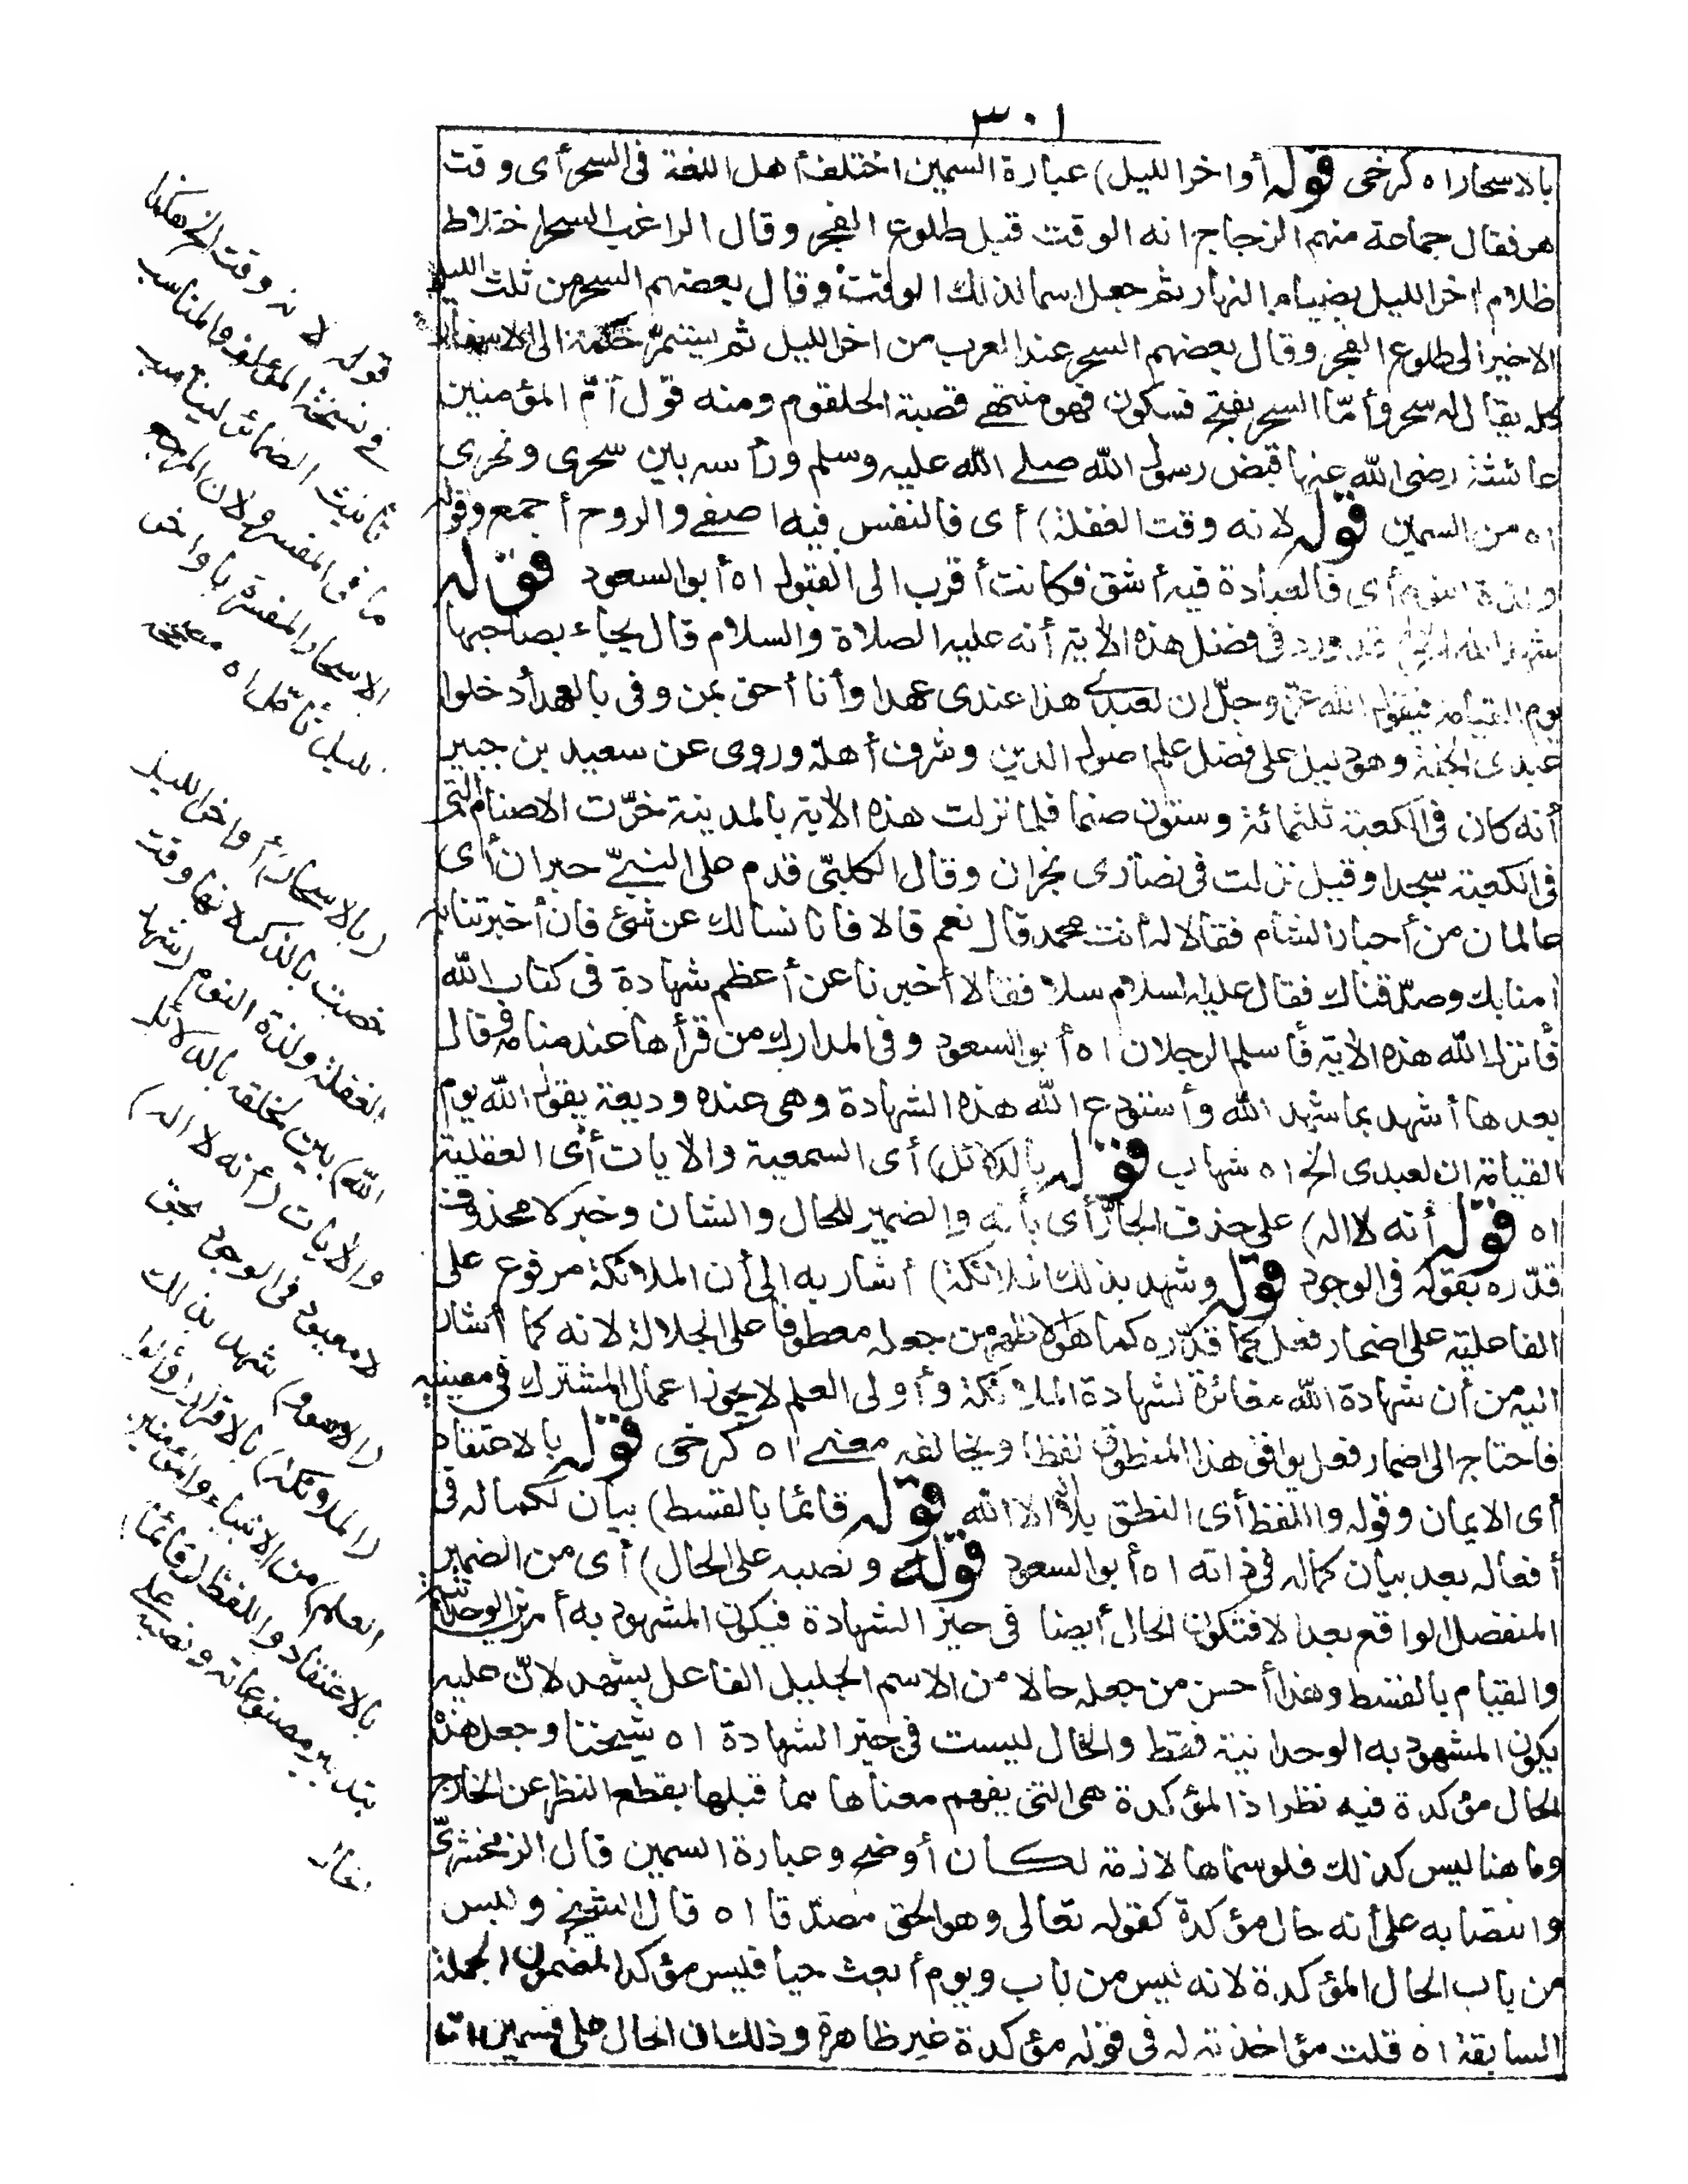 ٣٠١
بالاسحار اه كرخى قوله أواخر الليل) عبارة السمين اختلف أهل اللغة فى السحر أى وقت
هو فقال جماعة منهم الزجاج انه الوقت قبل طلوع الفجر وقال الراغب السحر اختلاط
ظلام اخر الليل بضياء النهار ثم جعل اسما لذلك الوقت وقال بعضهم السحر من ثلث الليل
الاخير الى طلوع الفجر وقال بعضهم السحر عند العرب من اخر الليل ثم يستمر حكمه الى الاسفار
كله يقال له سحر وأمّا السحر بفتح فسكون فهو منتهى قصبة الحلقوم ومنه قول أمّ المؤمنين
عائشة رضى الله عنها قبض رسول الله صلى الله عليه وسلم ورأسه بين سحرى ونحرى
اه من السمين قوله لانه وقت الغفلة) أى فالنفس فيه اصفى والروح أجمع وقوله
ولذة النوم أى فالعبادة فيه أشق فكانت أقرب الى القبول اه أبو السعود قوله
شهد الله الخ) قد ورد فى فضل هذه الاية أنه عليه الصلاة والسلام قال يجاء بصاحبها
يوم القيامة فيقول الله عزّ وجلّ ان لعبدى هذا عندى عهدا وأنا أحق بمن وفى بالعهد أدخلوا
عبدى الجنة وهو دليل على فضل علم اصول الدين وشرف أهله وروى عن سعيد بن جبير
أنه كان فى الكعبة ثلثمائة وستون صنما فلما نزلت هذه الاية بالمدينة خرّت الاصنام التى
فى الكعبة سجدا وقيل نزلت فى نصارى نجران وقال الكلبىّ قدم على النبىّ حبران أى
عالمان من أحبار الشام فقالا له أنت محمد قال نعم قالا فانا نسالك عن شئ فان أخبرتنا به
امنا بك وصدّقناك فقال عليه السلام سلا فقالا أخبرنا عن أعظم شهادة فى كتاب الله
فأنزل الله هذه الاية فأسلم الرجلان اه أبو السعود وفى المدارك من قرأها عند منامه وقال
بعدها أشهد بما شهد الله وأستودع الله هذه الشهادة وهى عنده وديعة يقول الله يوم
القيامة ان لعبدى الخ اه شهاب قوله بالدلائل) أى السمعية والايات أى العقلية
اه قوله أنه لا اله) على حذف الجارّ أى بأنه والضمير للحال والشان وخبر لا محذوف
قدّره بقوله فى الوجود قوله وشهد بذلك الملائكة) أشار به الى أن الملائكة مرفوع على
الفاعلية على اضمار فعل كما قدّره كما هو الاظهر من جعله معطوفا على الجلالة لانه كما أشار
اليه من أن شهادة الله مغائرة لشهادة الملائكة وأولى العلم لا يجوز اعمال المشترك فى معنييه
فاحتاج الى اضمار فعل يوافق هذا المنطوق لفظا ويخالفه معنى اه كرخى قوله بالاعتقاد
أى الايمان وقوله واللفظ أى النطق بلا اله الا الله قوله قائما بالقسط) بيان لكماله فى
أفعاله بعد بيان كماله فى ذاته اه أبو السعود قوله ونصبه على الحال) أى من الضمير
المنفصل الواقع بعد الا فتكون الحال أيضا فى حيز الشهادة فيكون المشهود به أمرين الوحدانية
والقيام بالقسط وهذا أحسن من جعله حالا من الاسم الجليل الفاعل بشهد لانّ عليه
يكون المشهود به الوحدانية فقط والحال ليست فى حيز الشهادة اه شيخنا وجعل هذه
الحال مؤكدة فيه نظر اذ المؤكدة هى التى يفهم معناها مما قبلها بقطع النظر عن الخارج
وما هنا ليس كذلك فلو سماها لازمة لكان أوضح وعبارة السمين قال الزمخشرىّ
وانتصابه على أنه حال مؤكدة كقوله تعالى وهو الحق مصدّقا اه قال الشيخ وليس
من باب الحال المؤكدة لانه ليس من باب ويوم أبعث حيا فليس مؤكدا لمضمون الجملة
السابقة اه قلت مؤاخذته له فى قوله مؤكدة غير ظاهرة وذلك ان الحال على قسمين اما
قوله لانه وقت الخ هكذا
فى نسخة المؤلف والمناسب
تأنيث الضمائر ليناسب
ما فى المفسر ولان المرجع
الاسحار المفسر بأواخر
الليل تأمّل اه مصححه
(بالاسحار) أواخر الليل
خصت بالذكر لانها وقت
الغفلة ولذة النوم (شهد
الله) بين لخلقه بالدلائل
والايات (أنه لا اله)
لا معبود فى الوجود بحق
(الا هو و) شهد بذلك
(الملائكة) بالاقرار (وأولوا
العلم) من الانبياء والمؤمنين
بالاعتقاد واللفظ (قائما)
بتدبير مصنوعاته ونصبه على
الحال